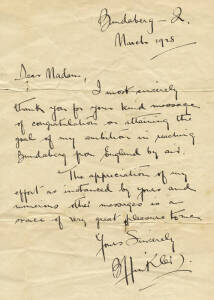 Bundaberg – Q.
March 1928
Dear Madam,
I most sincerely
thank you for your kind message
of congratulation on attaining the
goal of my ambition in reaching
Bundaberg from England by air.
The appreciation of my
effort as instanced by yours and
numerous other messages is a
source of very great pleasure to me.
Yours Sincerely